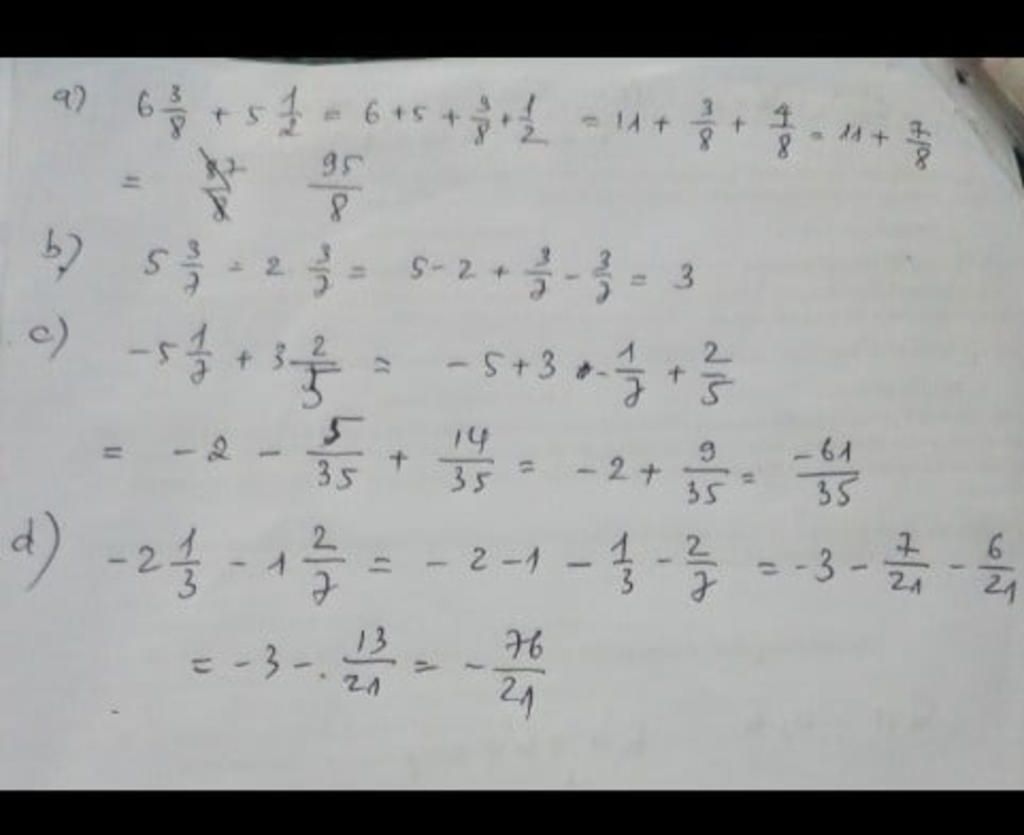 a) 6 3/8 + 5 1/2 = 6 + 5 + 3/8 + 1/2 = 11 + 3/8 + 4/8 = 11 + 7/8
= 95/8
b) 5 3/7 - 2 3/7 = 5 - 2 + 3/7 - 3/7 = 3
c) -5 1/7 + 3 2/5 = -5 + 3 - 1/7 + 2/5
= -2 - 5/35 + 14/35 = -2 + 9/35 = -61/35
d) -2 1/3 - 1 2/7 = -2 - 1 - 1/3 - 2/7 = -3 - 7/21 - 6/21
= -3 - 13/21 = -76/21